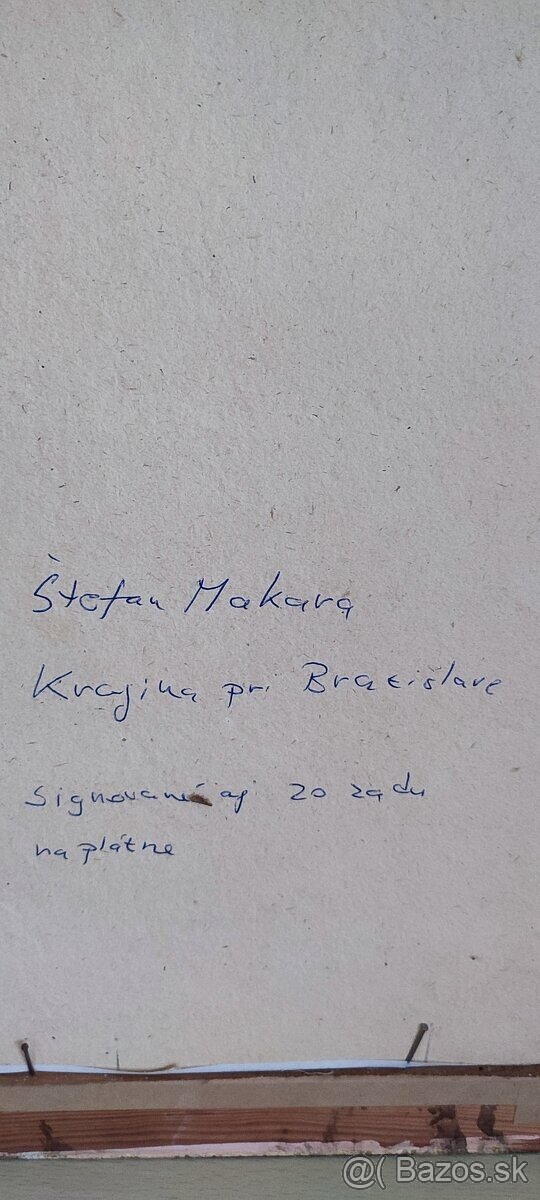 Štefan Makara
Krajina pri Bratislave
Signované aj zo zadu
na plátne
@( Bazos.sk